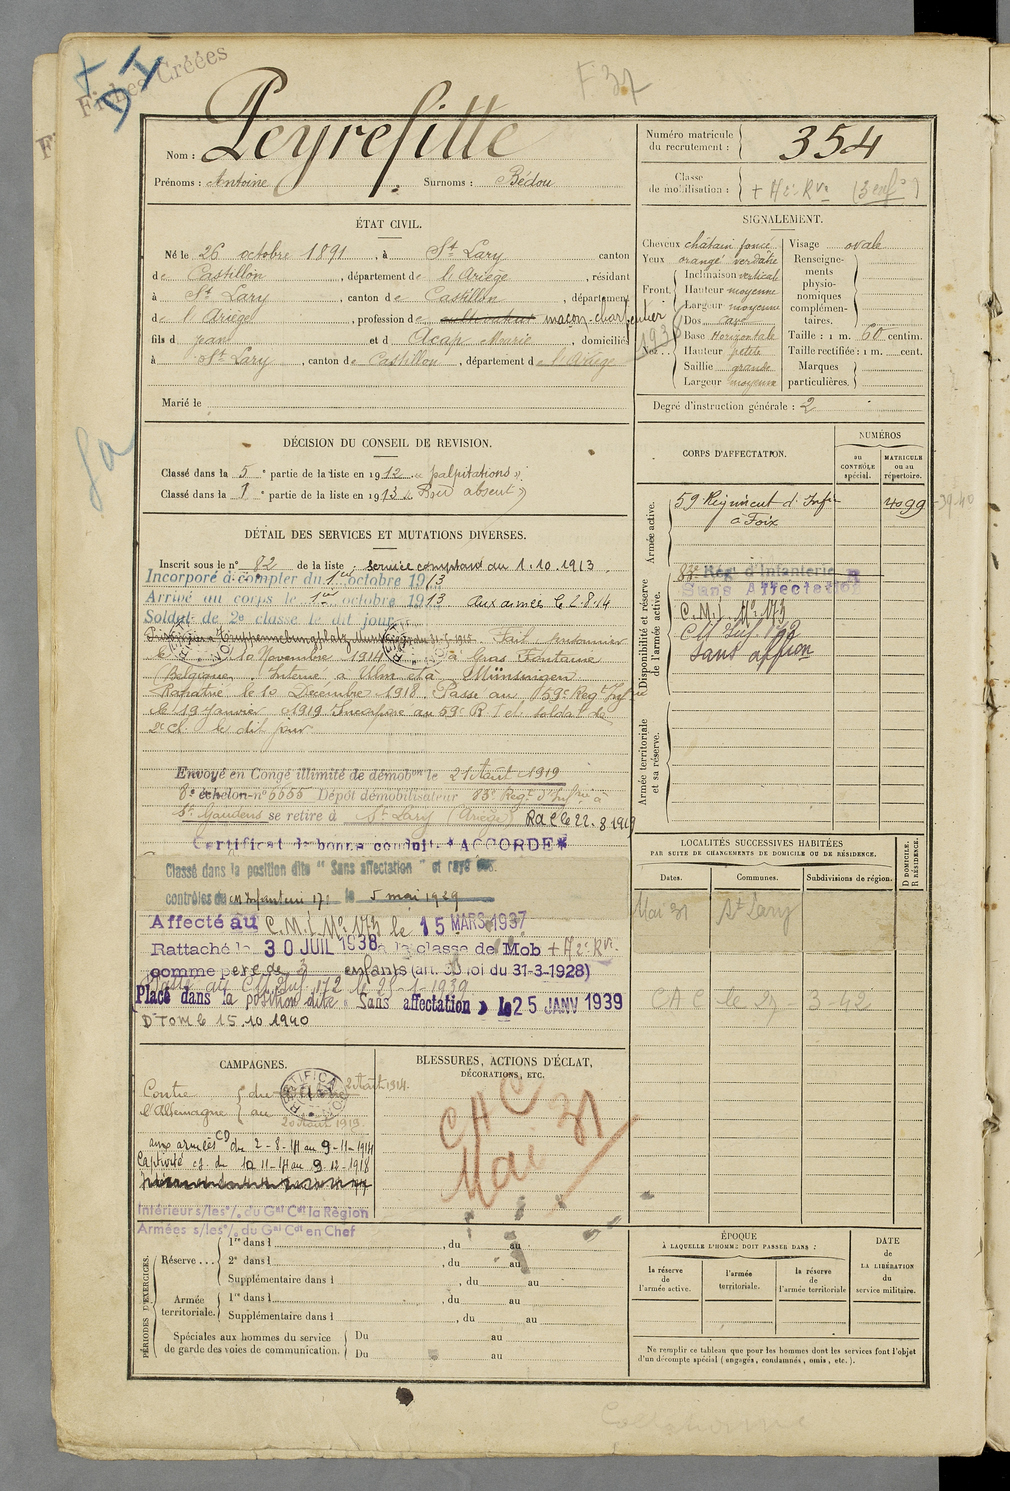 Fiches Créées
DI
F 37
Nom : Peyrefitte
Prénoms : Antoine Surnoms : Bédou
Numéro matricule du recrutement : 354
Classe de mobilisation : + A 2e Rve (3 enfts)
ÉTAT CIVIL.
Né le 26 octobre 1891, à St Lary canton
de Castillon, département de l'Ariège, résidant
à St Lary, canton de Castillon, département
de l'Ariège, profession de cultivateur maçon-charpentier
fils de Jean et de Acap Marie, domiciliés
à St Lary, canton de Castillon, département de l'Ariège
Marié le
SIGNALEMENT.
Cheveux châtain foncé
Yeux orangé verdâtre
Front. Inclinaison verticale
Hauteur moyenne
Largeur moyenne
1936
Nez... Dos cave
Base Horizontale
Hauteur petite
Saillie grande
Largeur moyenne
Visage ovale
Renseignements physionomiques complémentaires.
Taille : 1 m. 60 centim.
Taille rectifiée : 1 m. cent.
Marques particulières.
Degré d'instruction générale : 2
DÉCISION DU CONSEIL DE REVISION.
Classé dans la 5e partie de la liste en 1912 « palpitations »
Classé dans la 1e partie de la liste en 1913 « Bon absent »
DÉTAIL DES SERVICES ET MUTATIONS DIVERSES.
Inscrit sous le n° 82 de la liste, service comptant du 1.10.1913.
Incorporé à compter du 1er octobre 1913
Arrivé au corps le 1er octobre 1913 aux armées le 2-8-14
Soldat de 2e classe le dit jour
Fait prisonnier
le 10 Novembre 1914 à Gras Fontaine
(Belgique. Interné à Ulm et à Münsingen
Rapatrié le 10 Décembre 1918. Passé au 159e Régt Infrie
le 19 Janvier 1919 Incorporé au 59e R I et soldat de
2e cl. le dit jour
Envoyé en Congé illimité de démobon le 21 Août 1919
8e échelon n° 6655 Dépôt démobilisateur 83e Régt d'Infrie à
St Gaudens se retire à St Lary (Ariège) RaC le 22.8.1919
Certificat de bonne conduite *ACCORDÉ*
Classé dans la position dite "Sans affectation" et rayé des
contrôles du CM Infanterie 17; le 5 mai 1929
Affecté au C.M.I. No 173 le 15 MARS 1937
Rattaché le 30 JUIL 1938 à la classe de Mob + A 2e Rve.
comme père de 3 enfants (art. 58 loi du 31-3-1928)
Passé au CM Inf. 172 le 25-1-1939
Placé dans la position dite « Sans affectation » le 25 JANV 1939
D Tom le 15.10.1940
CORPS D'AFFECTATION.
NUMÉROS
au CONTRÔLE spécial.
MATRICULE ou au répertoire.
Armée active.
59 Régiment d'Infie 4099
à Foix
39-40
Disponibilité et réserve de l'armée active.
83e Rég. d'Infanterie R
Sans Affectation
C.M.I. No 173
CM Inf. 172
Sans affon
Armée territoriale et sa réserve.
LOCALITÉS SUCCESSIVES HABITÉES
PAR SUITE DE CHANGEMENTS DE DOMICILE OU DE RÉSIDENCE.
Dates. Communes. Subdivisions de région.
D DOMICILE. R RÉSIDENCE.
Mai 31 St Lary
CAC le 27-3-42
CAMPAGNES.
Contre l'Allemagne du 2 Août 1914
au 20 Août 1919
RECTIFICATION
aux armées CD du 2-8-14 au 9-11-1914
Captivité CS du 10-11-14 au 9-12-1918
Intérieur s/les o/. du Gal Cdt la Région
Armées s/les o/. du Gal Cdt en Chef
BLESSURES, ACTIONS D'ÉCLAT,
DÉCORATIONS, ETC.
CAC
Mai 31
PÉRIODES D'EXERCICES.
Réserve... 1re dans l , du au
2e dans l , du au
Supplémentaire dans l , du au
Armée territoriale. 1re dans l , du au
Supplémentaire dans l , du au
Spéciales aux hommes du service de garde des voies de communication. Du au
Du au
ÉPOQUE
À LAQUELLE L'HOMME DOIT PASSER DANS :
la réserve de l'armée active.
l'armée territoriale.
la réserve de l'armée territoriale
DATE de LA LIBÉRATION du service militaire.
Ne remplir ce tableau que pour les hommes dont les services font l'objet
d'un décompte spécial (engagés, condamnés, omis, etc.).